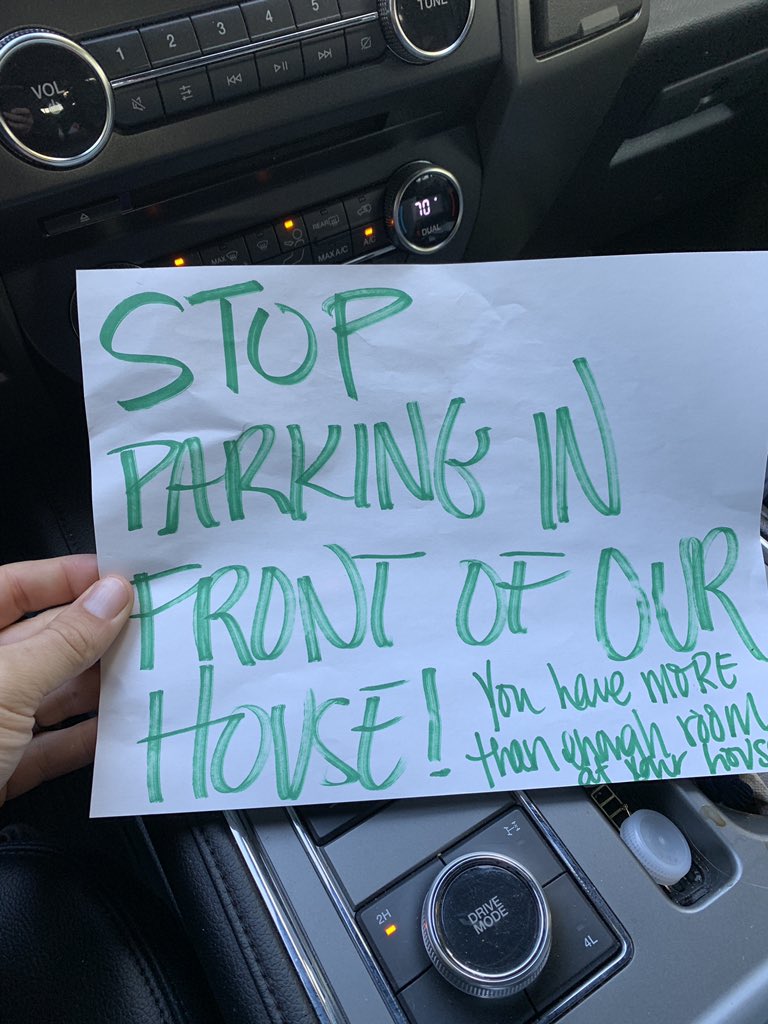 VOL
1 2 3 4 5
TUNE
70°
DUAL
MAX
REAR
MAX A/C
A/C
STOP
PARKING IN
FRONT OF OUR
HOUSE!
You have MORE
than enough room
at your house
2H
DRIVE
MODE
4L